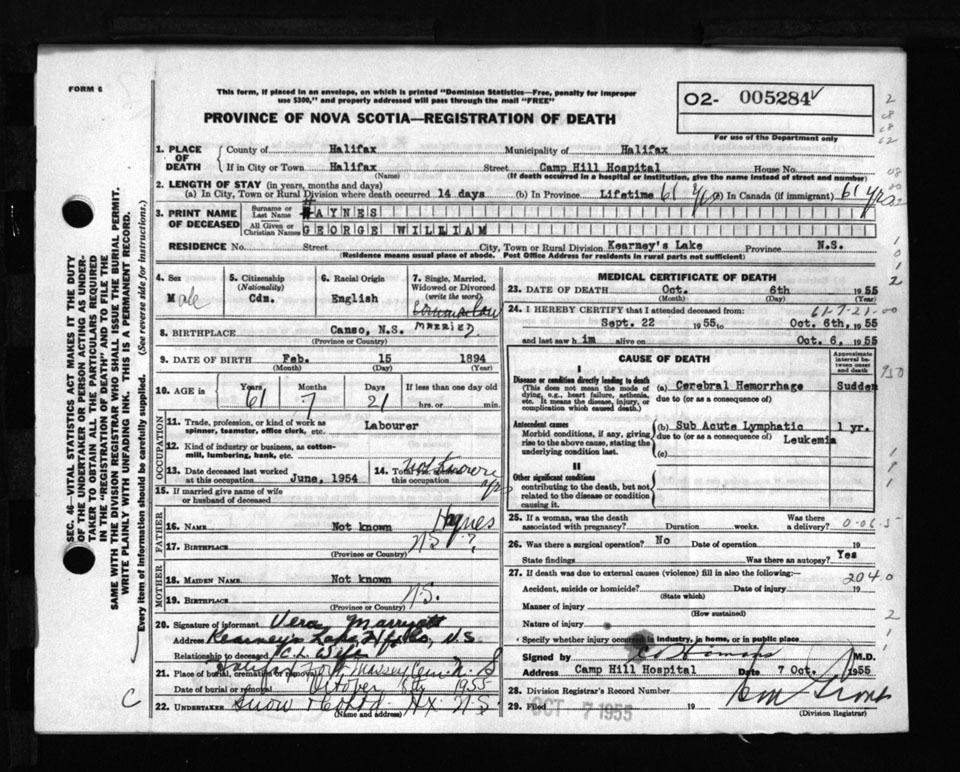 FORM 6
This form, if placed in an envelope, on which is printed "Dominion Statistics—Free, penalty for improper
use $300," and properly addressed will pass through the mail "FREE"
PROVINCE OF NOVA SCOTIA—REGISTRATION OF DEATH
O2- 005284
For use of the Department only
1. PLACE OF DEATH
County of Halifax Municipality of Halifax
If in City or Town Halifax Street Camp Hill Hospital House No.
(Name) (If death occurred in a hospital or institution, give the name instead of street and number)
2. LENGTH OF STAY (in years, months and days)
(a) In City, Town or Rural Division where death occurred 14 days (b) In Province Lifetime 61 (c) In Canada (if immigrant) 61
3. PRINT NAME OF DECEASED
Surname or Last Name HAYNES
All Given or Christian Names GEORGE WILLIAM
RESIDENCE No. Street City, Town or Rural Division Kearney's Lake Province N.S.
(Residence means usual place of abode. Post Office Address for residents in rural parts not sufficient)
4. Sex Male
5. Citizenship (Nationality) Cdn.
6. Racial Origin English
7. Single, Married, Widowed or Divorced (write the word) MARRIED
8. BIRTHPLACE Canso, N.S.
(Province or Country)
9. DATE OF BIRTH Feb. 15 1894
(Month) (Day) (Year)
10. AGE is Years 61 Months 7 Days 21 If less than one day old hrs. or min.
OCCUPATION
11. Trade, profession, or kind of work as spinner, teamster, office clerk, etc. Labourer
12. Kind of industry or business, as cotton-mill, lumbering, bank, etc.
13. Date deceased last worked at this occupation June, 1954
14. Total years at this occupation Not Known
15. If married give name of wife or husband of deceased
FATHER
16. NAME Not known Haynes
17. BIRTHPLACE N.S. ?
(Province or Country)
MOTHER
18. MAIDEN NAME Not known
19. BIRTHPLACE N.S.
(Province or Country)
20. Signature of informant Vera Marryatt
Address Kearney's Lake Hfx Co, N.S.
Relationship to deceased C.L. Wife
21. Place of burial, cremation or removal Halifax Fort Massey
Date of burial or removal October 1955
22. UNDERTAKER Snow Hx N.S.
(Name and address)
MEDICAL CERTIFICATE OF DEATH
23. DATE OF DEATH Oct. 6th 1955
(Month) (Day) (Year)
61-7-21-00
24. I HEREBY CERTIFY that I attended deceased from:
Sept. 22 1955 to Oct. 6th, 1955
and last saw him alive on Oct. 6, 1955
CAUSE OF DEATH
Approximate interval between onset and death
I
Disease or condition directly leading to death
(This does not mean the mode of dying, e.g., heart failure, asthenia, etc. It means the disease, injury, or complication which caused death.)
(a) Cerebral Hemorrhage Sudden
due to (or as a consequence of)
Antecedent causes
Morbid conditions, if any, giving rise to the above cause, stating the underlying condition last.
(b) Sub Acute Lymphatic 1 yr.
due to (or as a consequence of) Leukemia
(c)
II
Other significant conditions
contributing to the death, but not related to the disease or condition causing it.
25. If a woman, was the death associated with pregnancy? Duration weeks. Was there a delivery?
26. Was there a surgical operation? No Date of operation 19
State findings Was there an autopsy? Yes
27. If death was due to external causes (violence) fill in also the following:—
2040
Accident, suicide or homicide? Date of injury 19
(State which)
Manner of injury
(How sustained)
Nature of injury
Specify whether injury occurred in industry, in home, or in public place
Signed by M.D.
Address Camp Hill Hospital Date 7 Oct. 1955
28. Division Registrar's Record Number
29. Filed OCT 7 1955 19
(Division Registrar)
C
SEC. 46—VITAL STATISTICS ACT MAKES IT THE DUTY
OF THE UNDERTAKER OR PERSON ACTING AS UNDER-
TAKER TO OBTAIN ALL THE PARTICULARS REQUIRED
IN THE "REGISTRATION OF DEATH" AND TO FILE THE
SAME WITH THE DIVISION REGISTRAR WHO SHALL ISSUE THE BURIAL PERMIT.
WRITE PLAINLY WITH UNFADING INK. THIS IS A PERMANENT RECORD.
Every item of information should be carefully supplied. (See reverse side for instructions.)